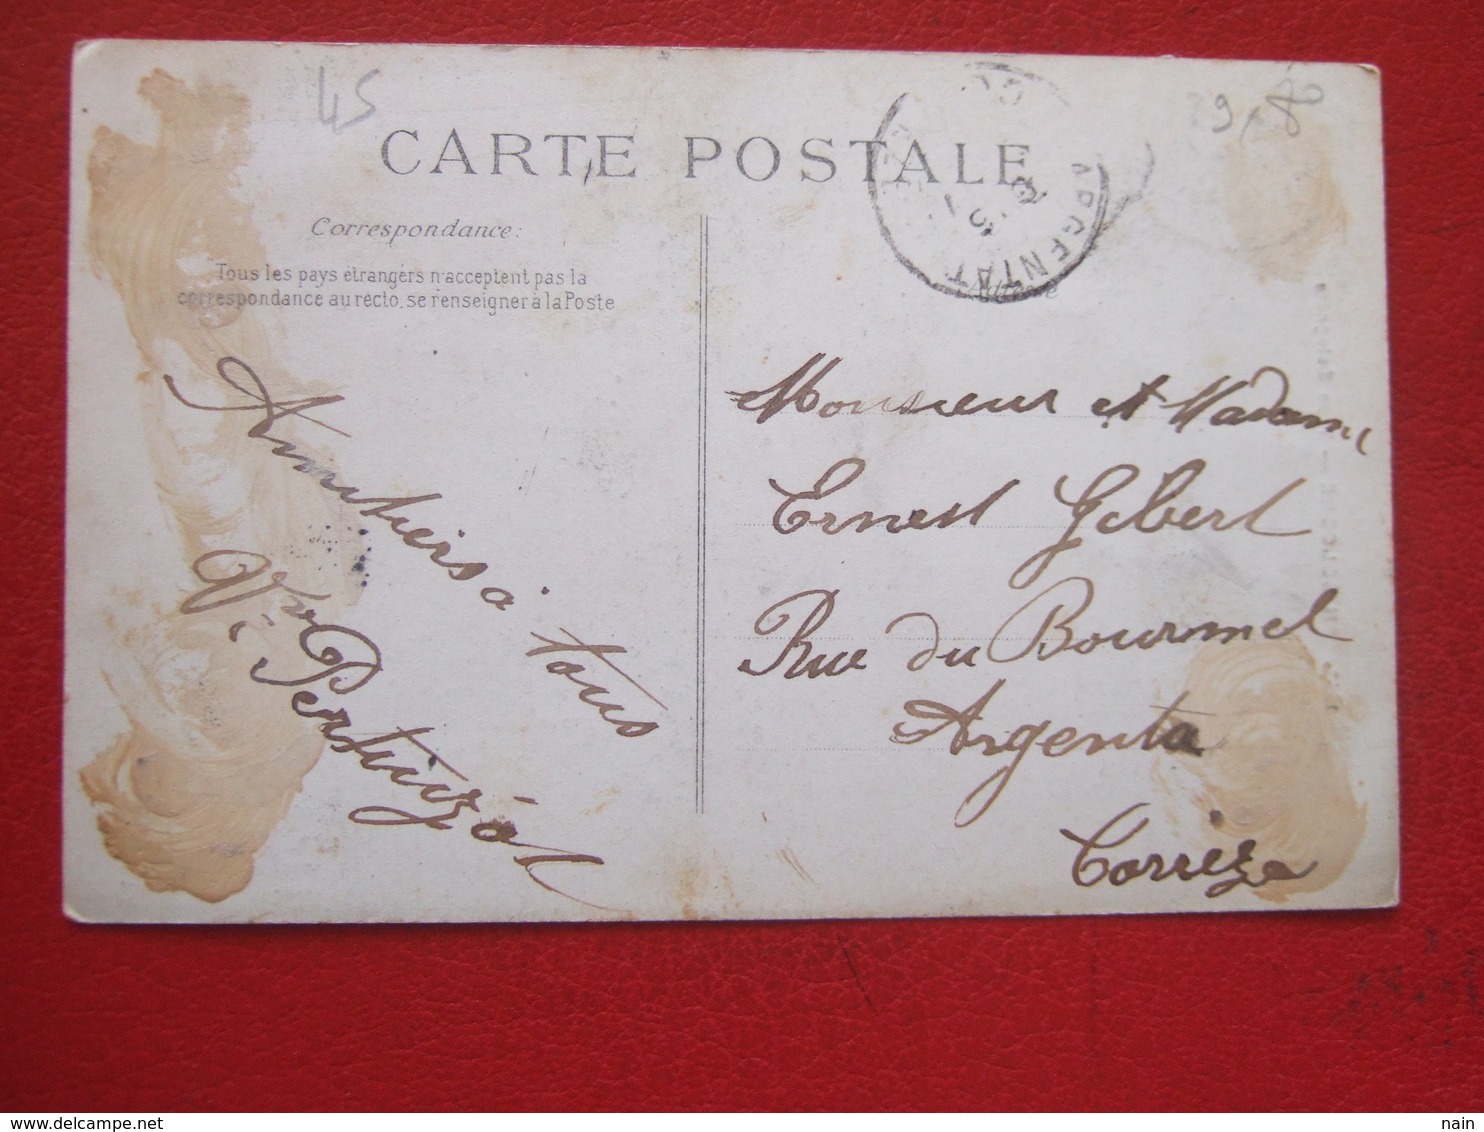 45
CARTE POSTALE
ARGENTAT
Correspondance:
Tous les pays étrangers n'acceptent pas la
correspondance au recto, se renseigner à la Poste
Adresse
Amitiers a tous
Vve Pertuizót
Monsieur et Madame
Ernest Gibert
Rue du Bournel
Argenta
Corrèze
nain
www.delcampe.net